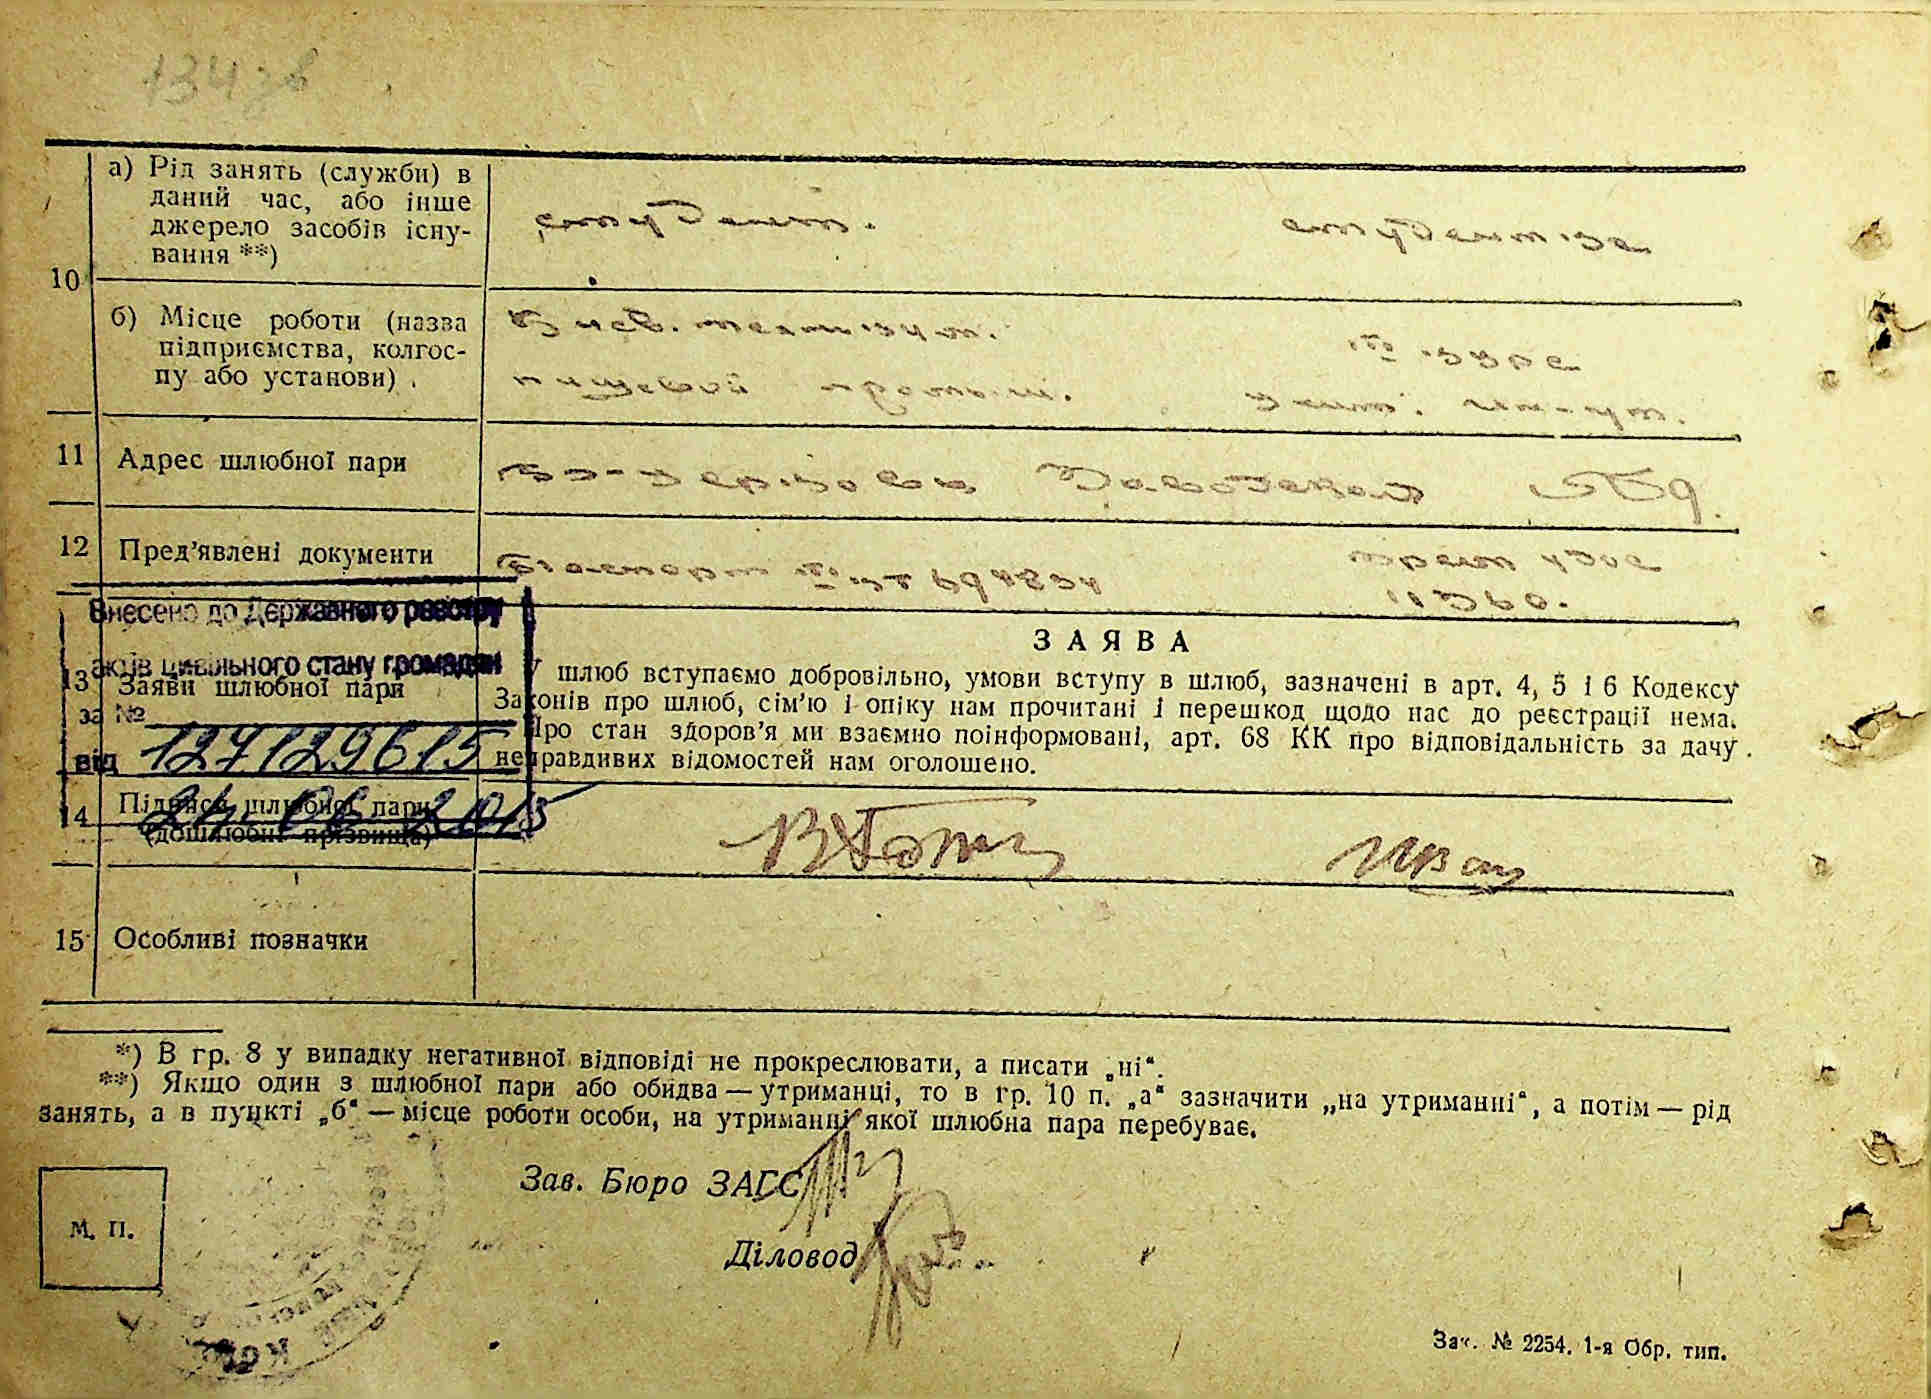 134 зв
а) Рід занять (служби) в
даний час, або інше
джерело засобів існу-
вання **)
студент.
студентка
10
б) Місце роботи (назва
підприємства, колгос-
пу або установи)
пищевой промыш.
11 Адрес шлюбної пари
12 Пред'явлені документи
Внесено до Державного реєстру
актів цивільного стану громадян
за №
від 127129615
24 06 2015
ЗАЯВА
13 Заяви шлюбної пари
У шлюб вступаємо добровільно, умови вступу в шлюб, зазначені в арт. 4, 5 і 6 Кодексу
Законів про шлюб, сім'ю і опіку нам прочитані і перешкод щодо нас до реєстрації нема.
Про стан здоров'я ми взаємно поінформовані, арт. 68 КК про відповідальність за дачу
неправдивих відомостей нам оголошено.
14 Підписи шлюбної пари
(дошлюбні прізвища)
15 Особливі позначки
*) В гр. 8 у випадку негативної відповіді не прокреслювати, а писати „ні“.
**) Якщо один з шлюбної пари або обидва — утриманці, то в гр. 10 п. „а“ зазначити „на утриманні“, а потім — рід
занять, а в пункті „б“ — місце роботи особи, на утриманні якої шлюбна пара перебуває.
Зав. Бюро ЗАГС
М. П.
Діловод
Зак. № 2254. 1-я Обр. тип.